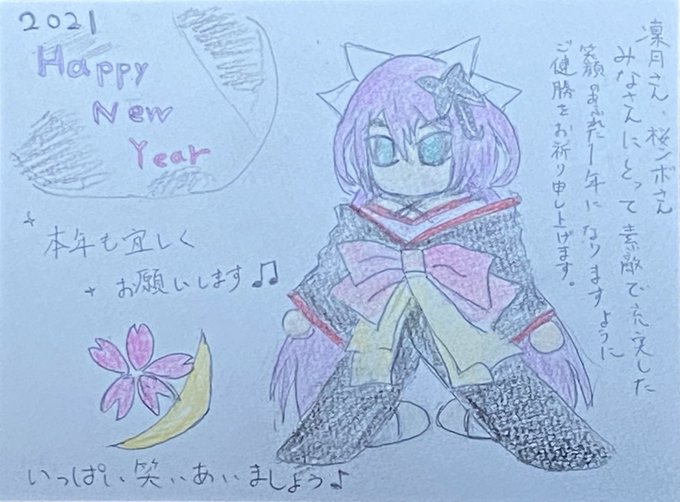 2021
Happy
New
Year
本年も宜しく
お願いします♫
凜月さん、桜ンボさん
みなさんにとって素敵で充実した
笑顔のあふれた1年になりますように
ご健勝をお祈り申し上げます。
いっぱい笑いあいましょう♪